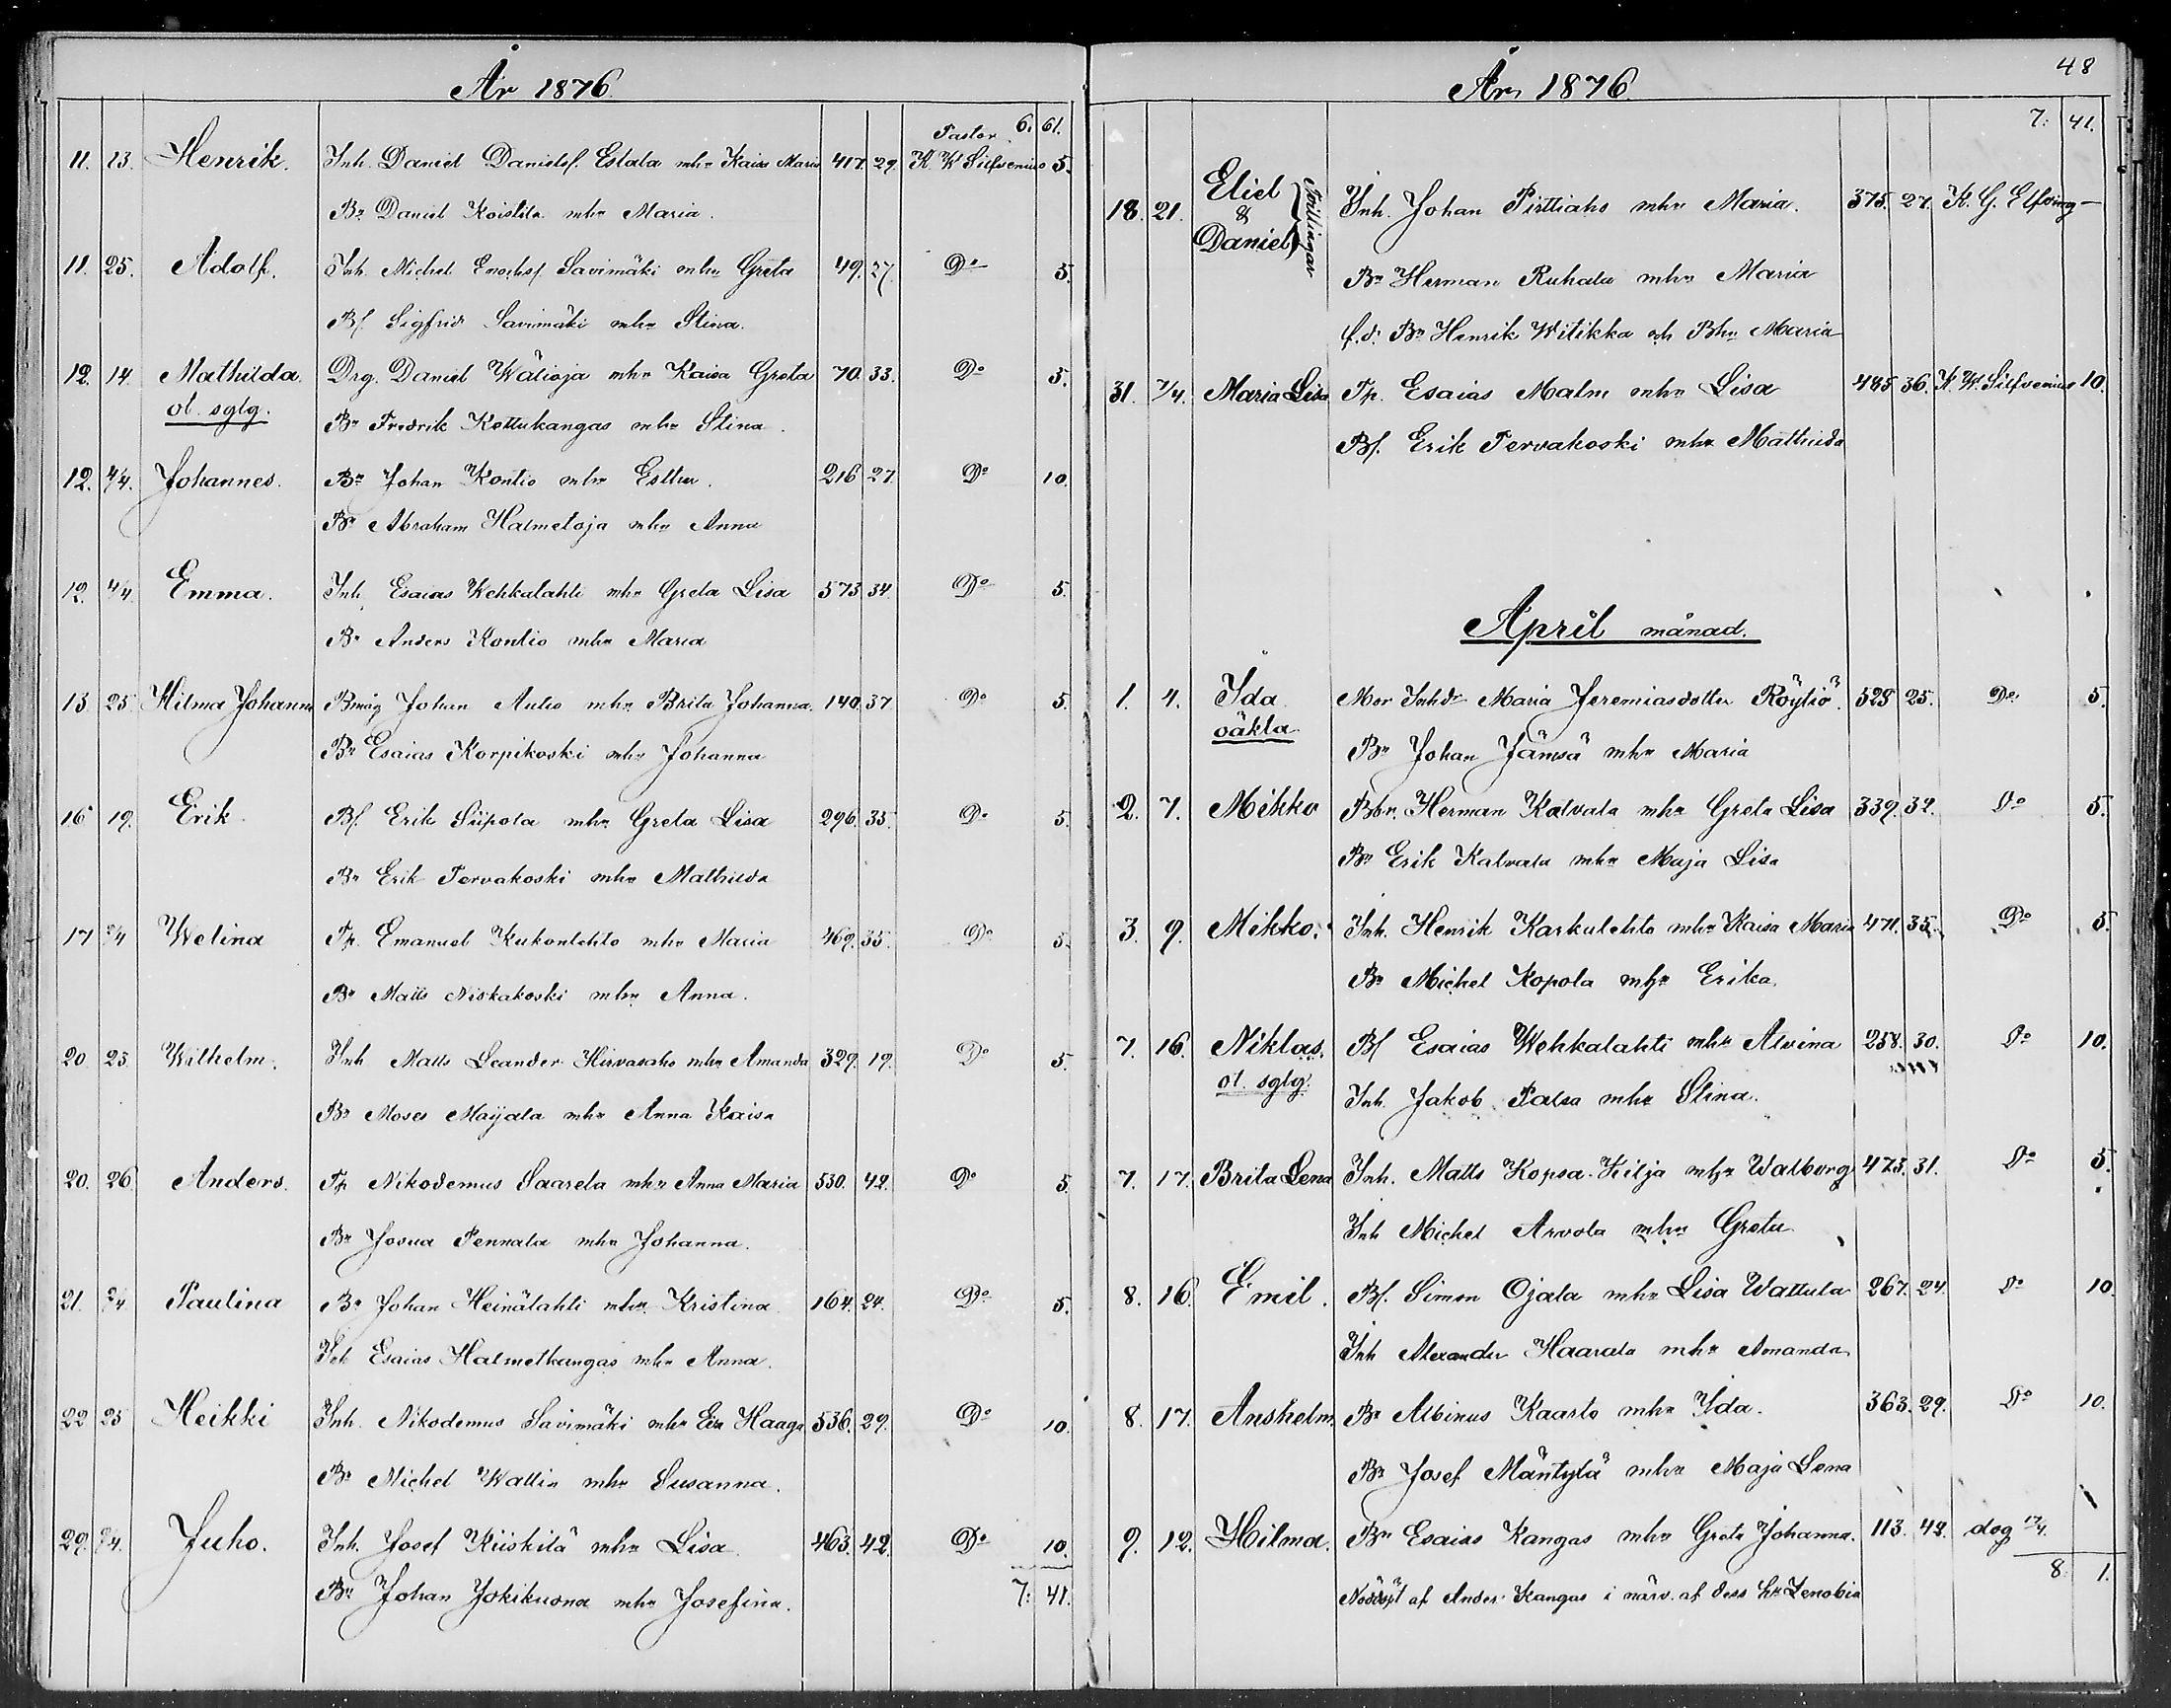 År 1876.
6. 61.
11. 13. Henrik. Inh. Daniel Danielsf. Estala mhu Kaisa Maria 417. 29. Pastor K. W. Silfvenius 5.
Bn Daniel Koistila mhu Maria.
11. 25. Adolf. Inh. Michel Enochsf Savimäki mhu Greta 49. 27. Do 5.
Bf. Sigfrid Savimäki mhu Stina.
12. 14. Mathilda. Drg. Daniel Wälioja mhu Kaisa Greta 70. 33. Do 5.
ot. sglg. Bn Fredrik Kottukangas mhu Stina.
12. 4/4. Johannes. Bn Johan Kontio mhu Esther. 216 27. Do 10.
Bn Abraham Halmetoja mhu Anna
12. 4/4. Emma. Inh. Esaias Wehkalahti mhu Greta Lisa 573 34. Do 5.
Bn Anders Kontio mhu Maria
13 25 Hilma Johanna Bmåg Johan Aulio mhu Brita Johanna. 140. 37 Do 5.
Bn Esaias Korpikoski mhu Johanna
16 19. Erik Bf. Erik Siipola mhu Greta Lisa 296. 35. Do 5.
Bn Erik Tervakoski mhu Mathilda
17 /4 Welina Tp. Emanuel Kukonlehto mhu Maria 469. 35. Do 5.
Bn Matts Niskakoski mhu Anna.
20 23. Wilhelm. Inh Matts Leander Hirvasaho mhu Amanda 329. 19. Do 5.
Bn Moses Maijala mhu Anna Kaisa
20. 26 Anders. Tp. Nikodemus Saarela mhu Anna Maria 530. 42. Do 5.
Bn Josua Pennala mhu Johanna.
21. 2/4 Paulina Bn Johan Heinälahti mhu Kristina 164. 24. Do 5.
Inh Esaias Halmetkangas mhu Anna.
22 25 Heikki Inh. Nikodemus Savimäki mhu Eva Haaga 536. 29. Do 10.
Bn Michel Wallin mhu Susanna.
29. /4. Juho. Inh. Josef Kiiskilä mhu Lisa 463. 42. Do 10.
Bn Johan Jokikuona mhu Josefina. 7: 41.
48
År 1876.
7: 41.
18. 21. Eliel & Daniel Tvillingar Inh. Johan Pirttiaho mhu Maria. 375. 27. K. G. Elfving —
Bn Herman Ruhala mhu Maria
f.d. Bn Henrik Witikka och Bhu Maria
31. 7/4. Maria Lisa Tp. Esaias Malm mhu Lisa 485 36. K. W. Silfvenius 10.
Bf. Erik Tervakoski mhu Mathilda
April månad.
1. 4. Ida Mor Inhdr Maria Jeremiasdotter Röytiö. 528 25. Do 5.
oäkta Bn Johan Jämsä mhu Maria
2. 7. Mikko Bbr. Herman Kalvala mhu Greta Lisa 339. 32. Do 5.
Bn Erik Kalvala mhu Maja Lisa
3. 9. Mikko. Inh. Henrik Karkulehto mhu Kaisa Maria 471. 35. Do 5.
Bn Michel Kopola mhu Erika.
7. 16. Niklas. Bf Esaias Wehkalahti mhu Alvina 258. 30. Do 10.
ot. sglg. Inh. Jakob Palsa mhu Stina.
7. 17. Brita Lena Inh. Matts Kopsa-Kilja mhu Walborg 473. 31. Do 5.
Inh Michel Arvola mhu Greta
8. 16. Emil. Bf. Simon Ojala mhu Lisa Wattula 267. 24. Do 10.
Inh Alexander Haarala mhu Amanda
8. 17. Anshelm. Bn Albinus Kaarlo mhu Ida. 363. 29. Do 10.
Bn Josef Mäntylä mhu Maja Lena
9. 12. Hilma. Bn Esaias Kangas mhu Greta Johanna. 113. 42. dog 17/4.
Nöddöpt af Anders Kangas i närv. af dess hu Zenobia 8. 1.